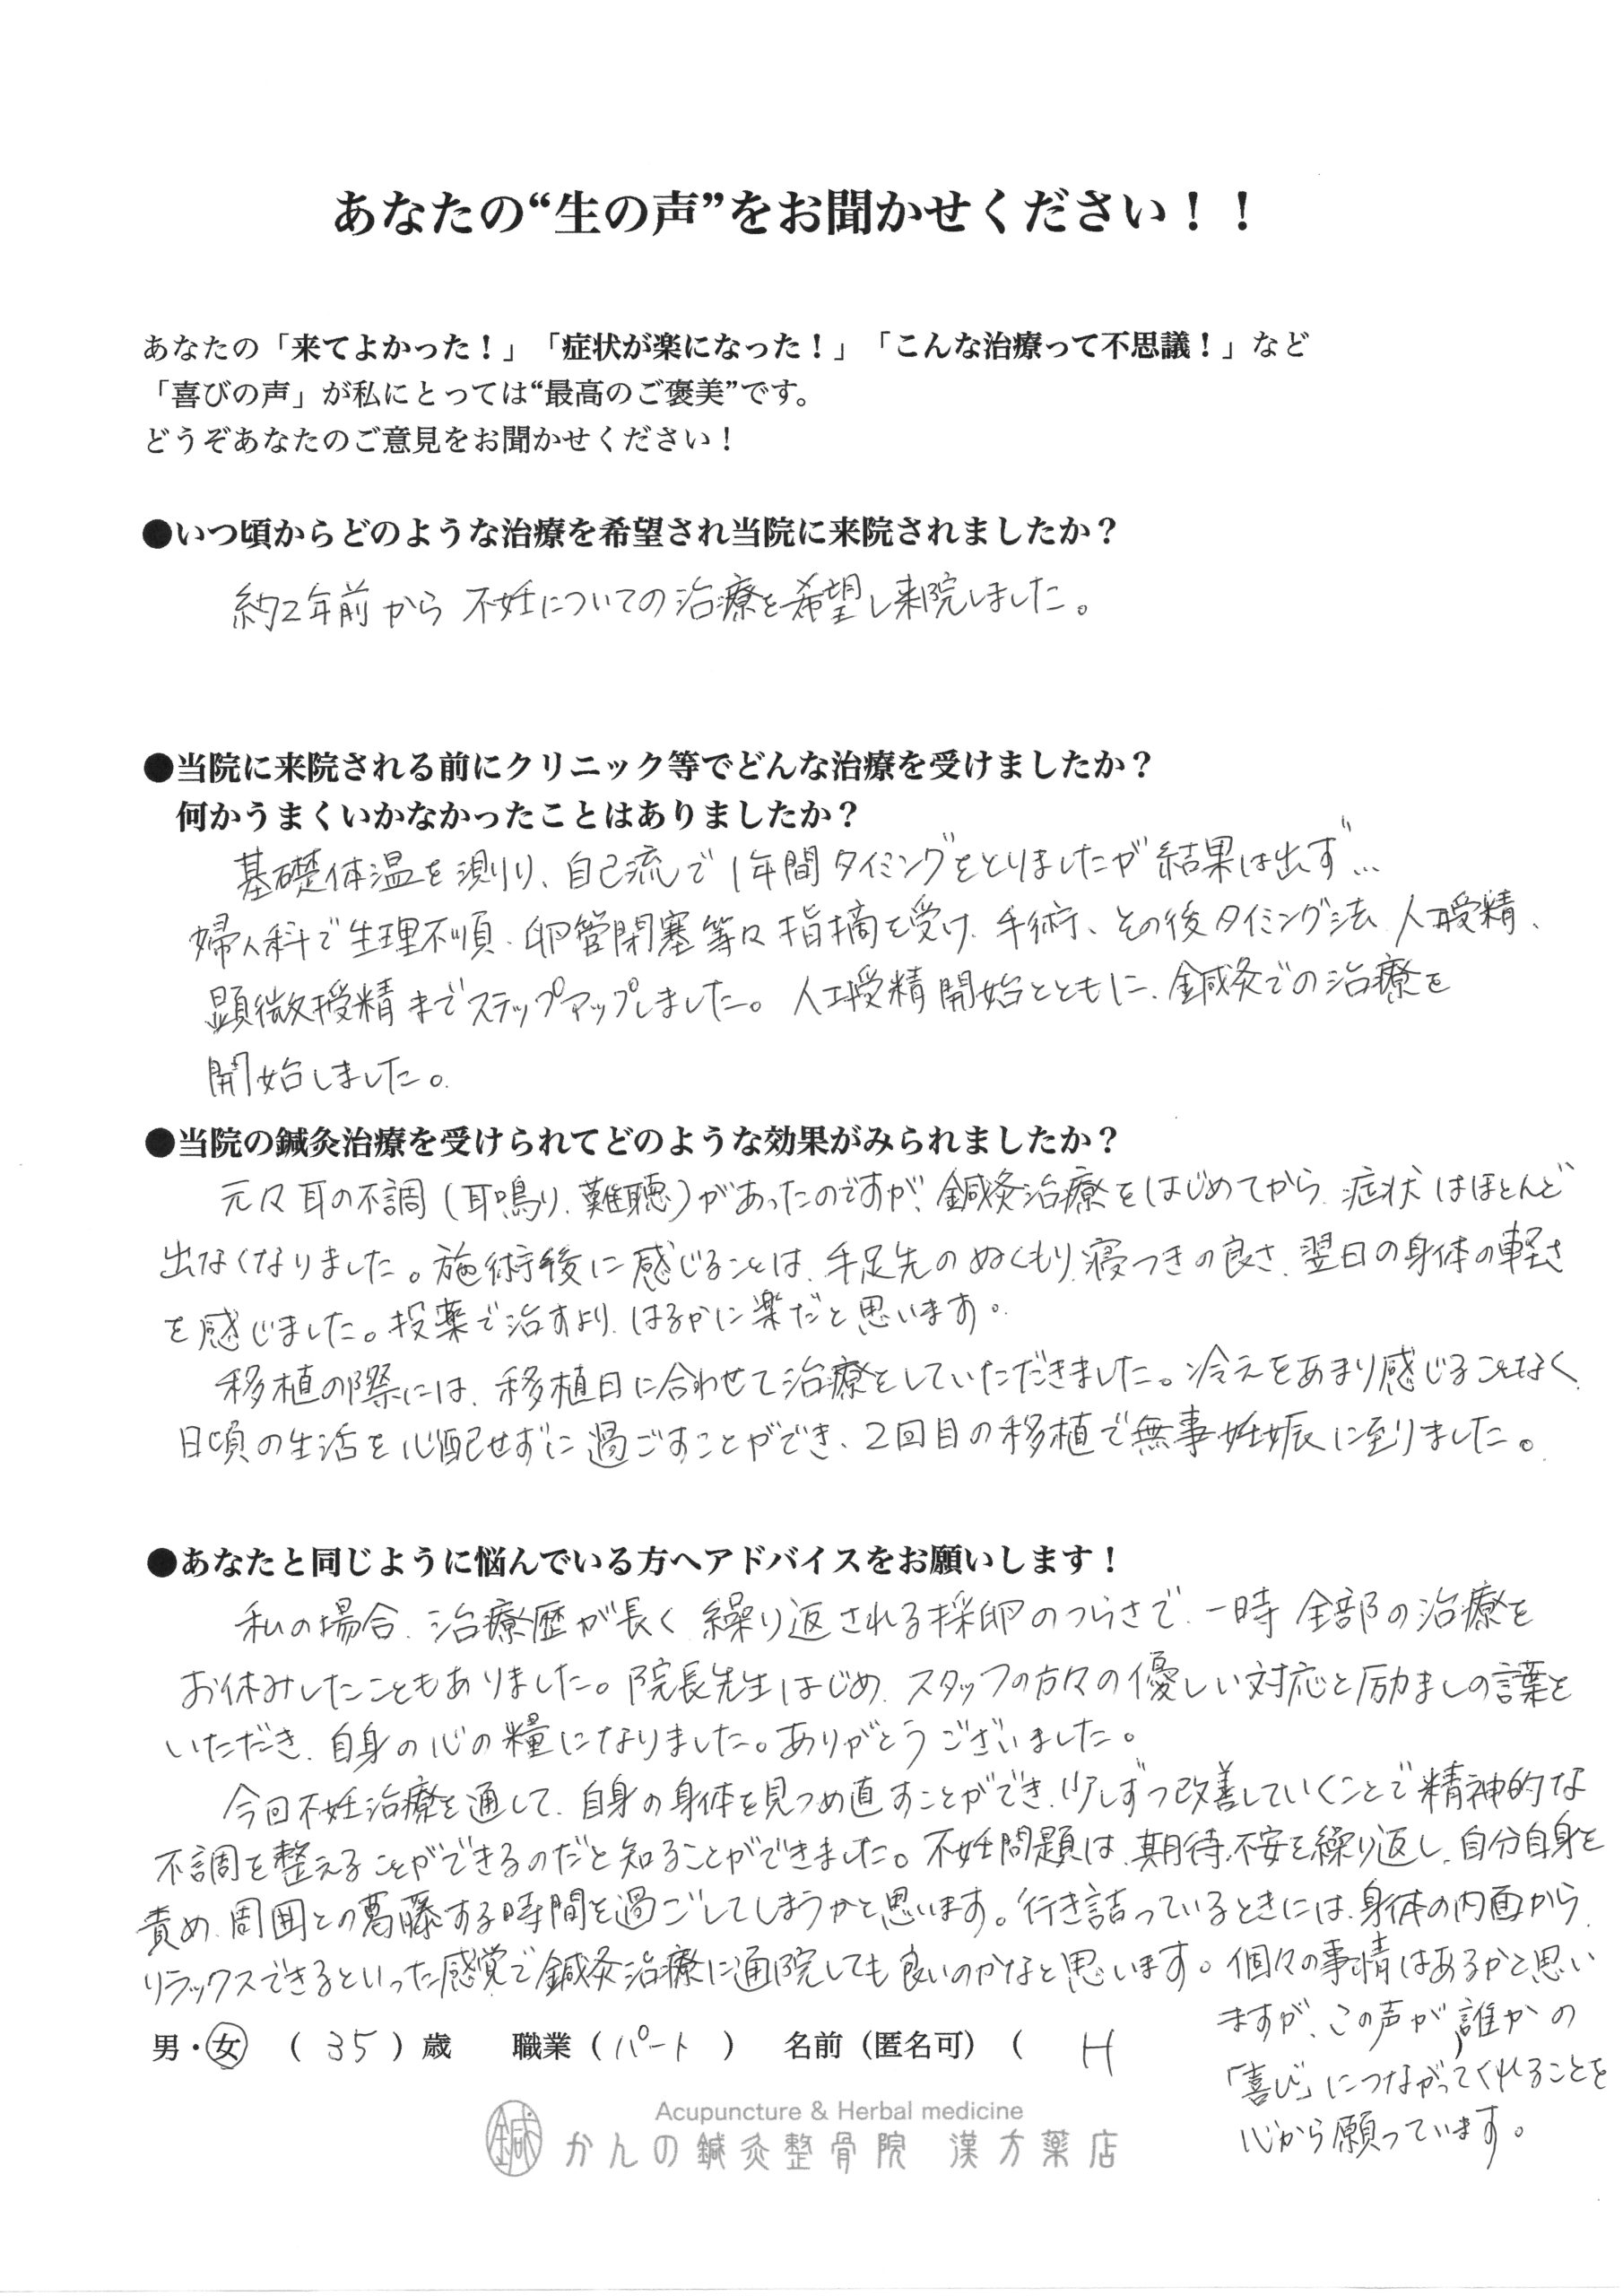 あなたの“生の声”をお聞かせください！！
あなたの「来てよかった！」「症状が楽になった！」「こんな治療って不思議！」など
「喜びの声」が私にとっては“最高のご褒美”です。
どうぞあなたのご意見をお聞かせください！
●いつ頃からどのような治療を希望され当院に来院されましたか？
約2年前から 不妊についての治療を希望し来院しました。
●当院に来院される前にクリニック等でどんな治療を受けましたか？
何かうまくいかなかったことはありましたか？
基礎体温を測り、自己流で1年間タイミングをとりましたが結果は出ず…
婦人科で生理不順、卵管閉塞等々指摘を受け、手術、その後タイミング法、人工授精、
顕微授精までステップアップしました。人工授精開始とともに、鍼灸での治療を
開始しました。
●当院の鍼灸治療を受けられてどのような効果がみられましたか？
元々耳の不調（耳鳴り、難聴）があったのですが、鍼灸治療をはじめてから、症状はほとんど
出なくなりました。施術後に感じることは、手足先のぬくもり、寝つきの良さ、翌日の身体の軽さ
を感じました。投薬で治すより、はるかに楽だと思います。
移植の際には、移植日に合わせて治療をしていただきました。冷えをあまり感じることなく、
日頃の生活を心配せずに過ごすことができ、2回目の移植で無事妊娠に至りました。
●あなたと同じように悩んでいる方へアドバイスをお願いします！
私の場合、治療歴が長く、繰り返される採卵のつらさで、一時 全部の治療を
お休みしたこともありました。院長先生はじめ、スタッフの方々の優しい対応と励ましの言葉を
いただき、自身の心の糧になりました。ありがとうございました。
今回不妊治療を通して、自身の身体を見つめ直すことができ、少しずつ改善していくことで精神的な
不調を整えることができるのだと知ることができました。不妊問題は、期待、不安を繰り返し、自分自身を
責め、周囲との葛藤する時間を過ごしてしまうかと思います。行き詰っているときには、身体の内面から、
リラックスできるといった感覚で鍼灸治療に通院しても良いのかなと思います。個々の事情はあるかと思い
ますが、この声が誰かの
「喜び」につながってくれることを
心から願っています。
男・女 （ 35 ）歳 職業（ パート ） 名前（匿名可）（ H ）
Acupuncture & Herbal medicine
鍼 かんの鍼灸整骨院 漢方薬店